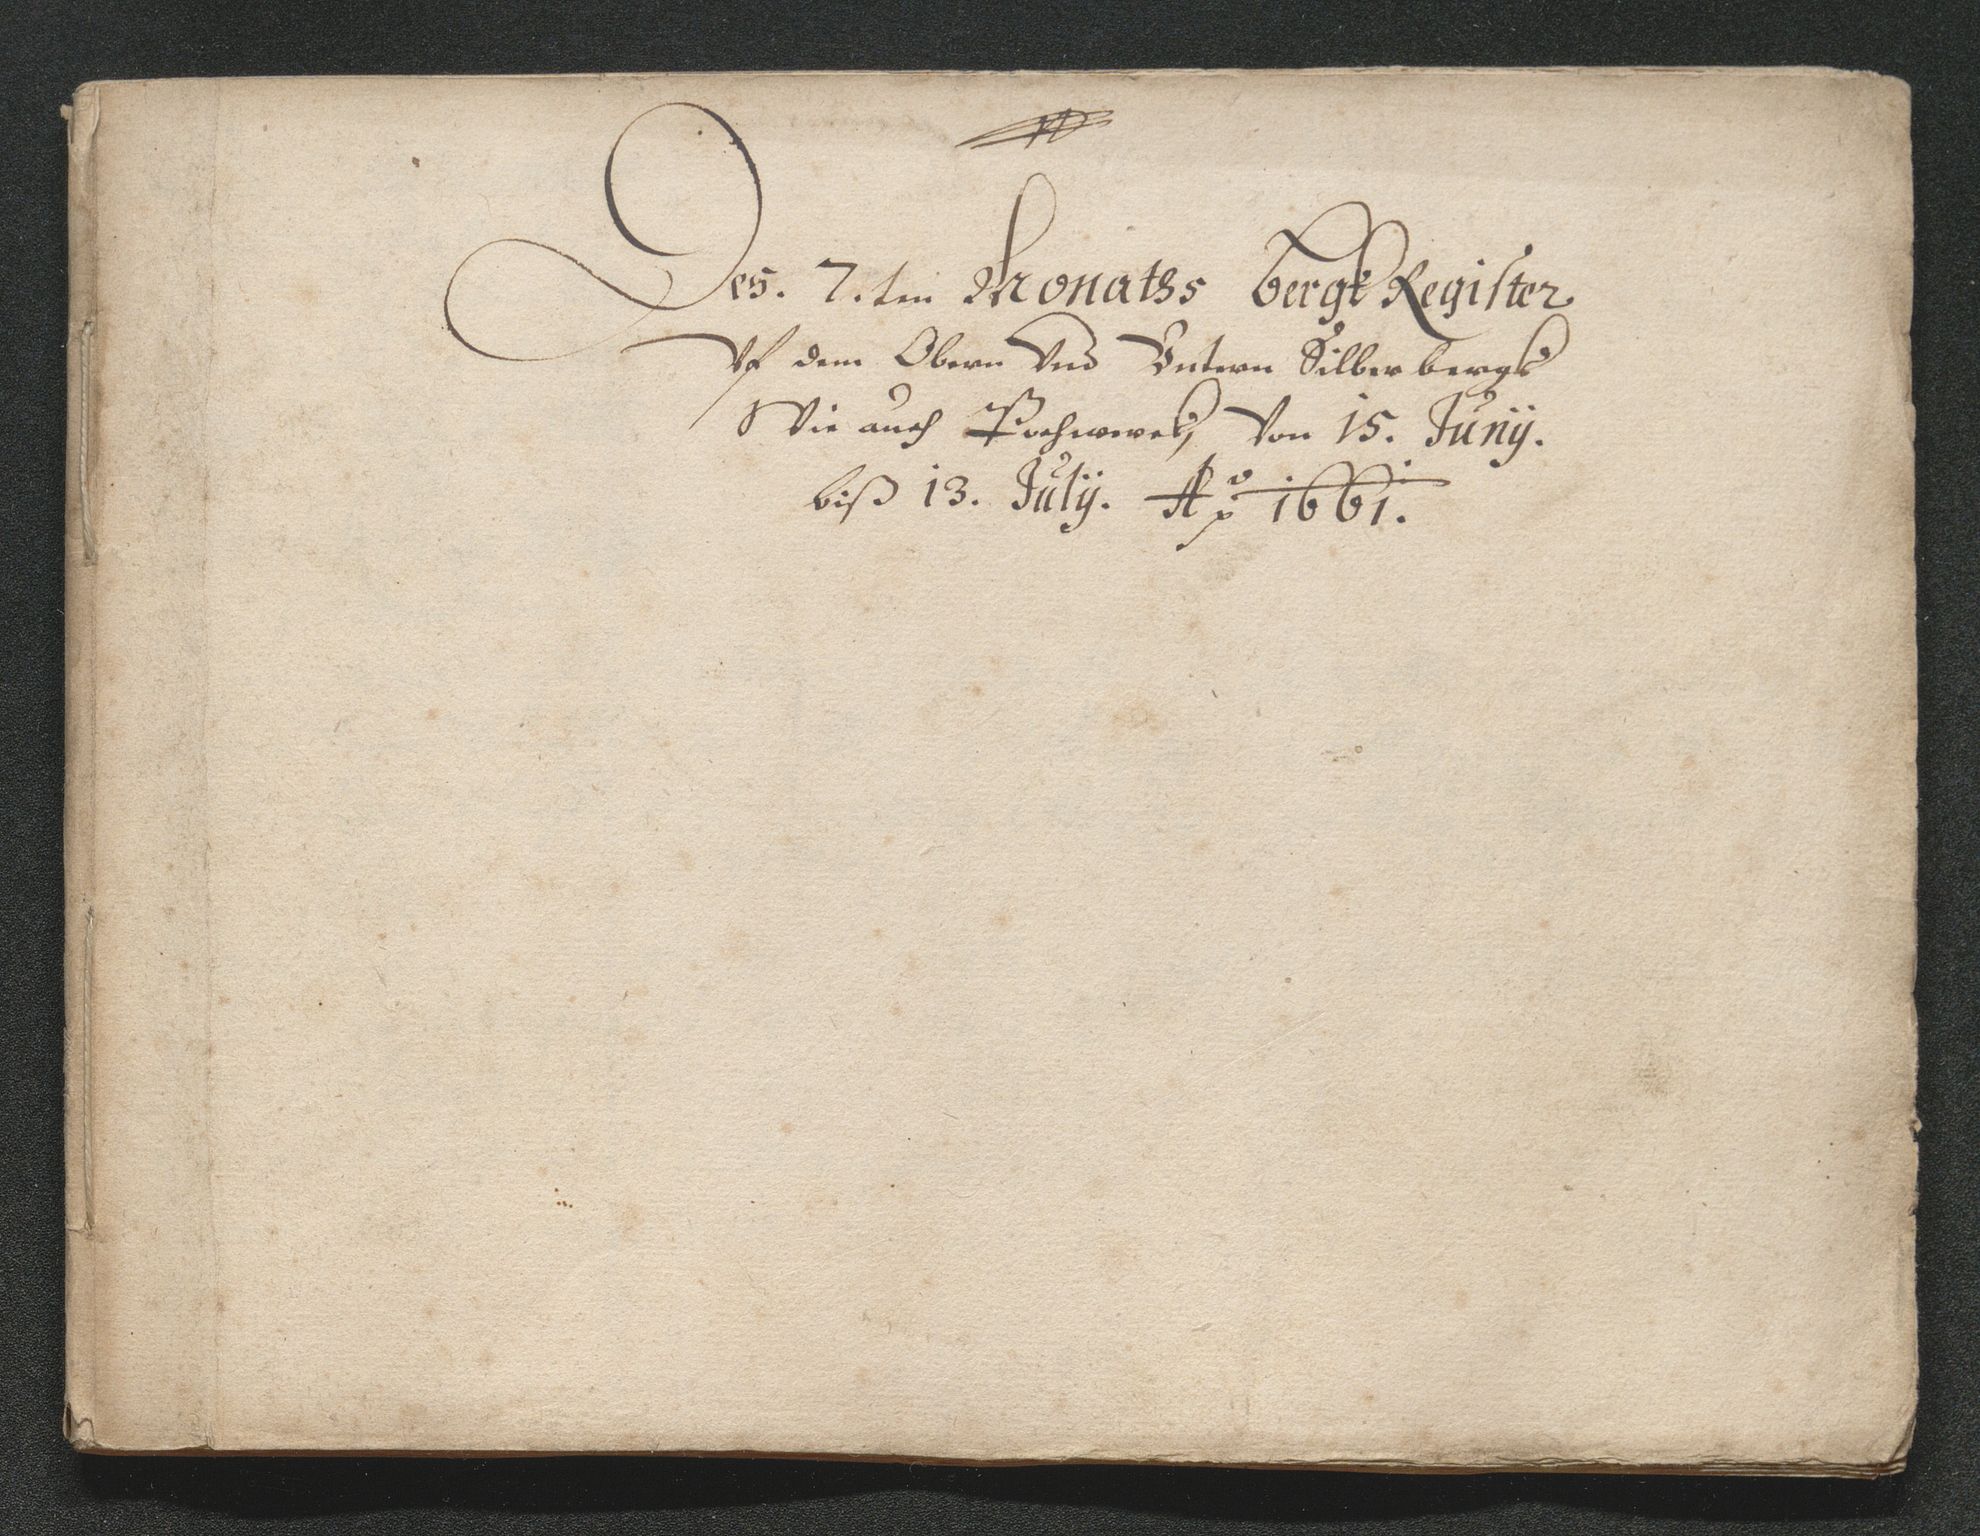 Des. 7.ten Monaths bergk Register
Vf dem Obern Vnd Vntern Silber bergk
Wie auch Pochwerk, Von 15. Junij.
biß 13. Julij. Ao 1661.